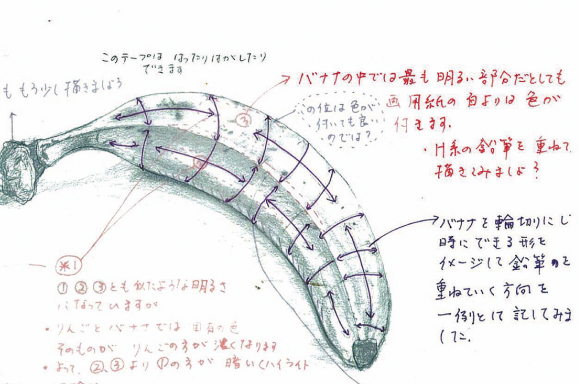 このテープは はったりはがしたり
できます
もう少し描きましょう
バナナの中では最も明るい部分だとしても
画用紙の白よりは色が
付きます。
・H系の鉛筆を重ねて
描きこみましょう
この位は色が
付いても良い
のでは?
③
バナナを輪切りにし
時にできる形を
イメージして鉛筆のを
重ねていく方向を
一例として記してみま
した。
※1
①②③とも似たような明るさ
になっていますが
・りんごとバナナでは固有の色
そのものがりんごの方が濃くなります
・よって、②、③より①の方が暗いハイライト